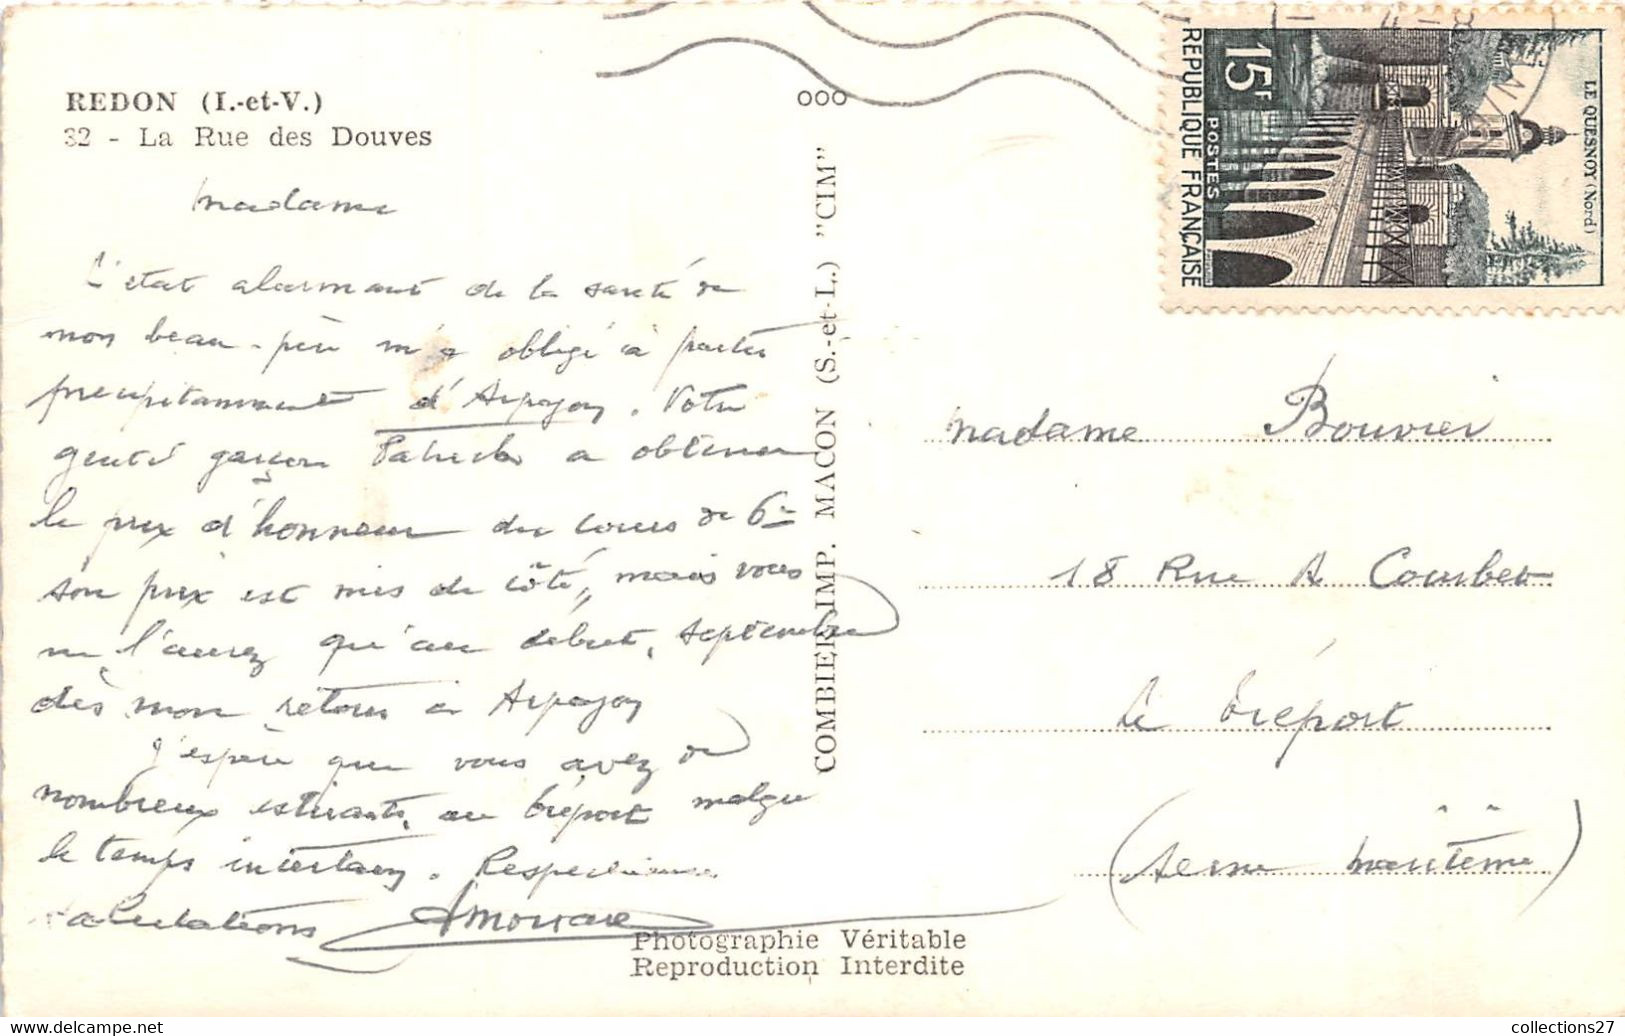 REDON (I.-et-V.)
32 - La Rue des Douves
Madame
L'état alarmant de la santé de
mon beau-père m'a obligé à partir
précipitamment d'Arpajon. Votre
gentil garçon Patrick a obtenu
le prix d'honneur du cours de 6e
son prix est mis de côté, mais vous
ne l'aurez qu'au début Septembre
dès mon retour à Arpajon
J'espère que vous avez de
nombreux estivants au Tréport malgré
le temps. Respectueuses
salutations
COMBIER IMP. MACON (S.-et-L.) "CIM"
Photographie Véritable
Reproduction Interdite
15F
POSTES
REPUBLIQUE FRANÇAISE
LE QUESNOY (Nord)
Madame Bouvier
18 Rue A Courbet
Le Tréport
(Seine Maritime)
collections27